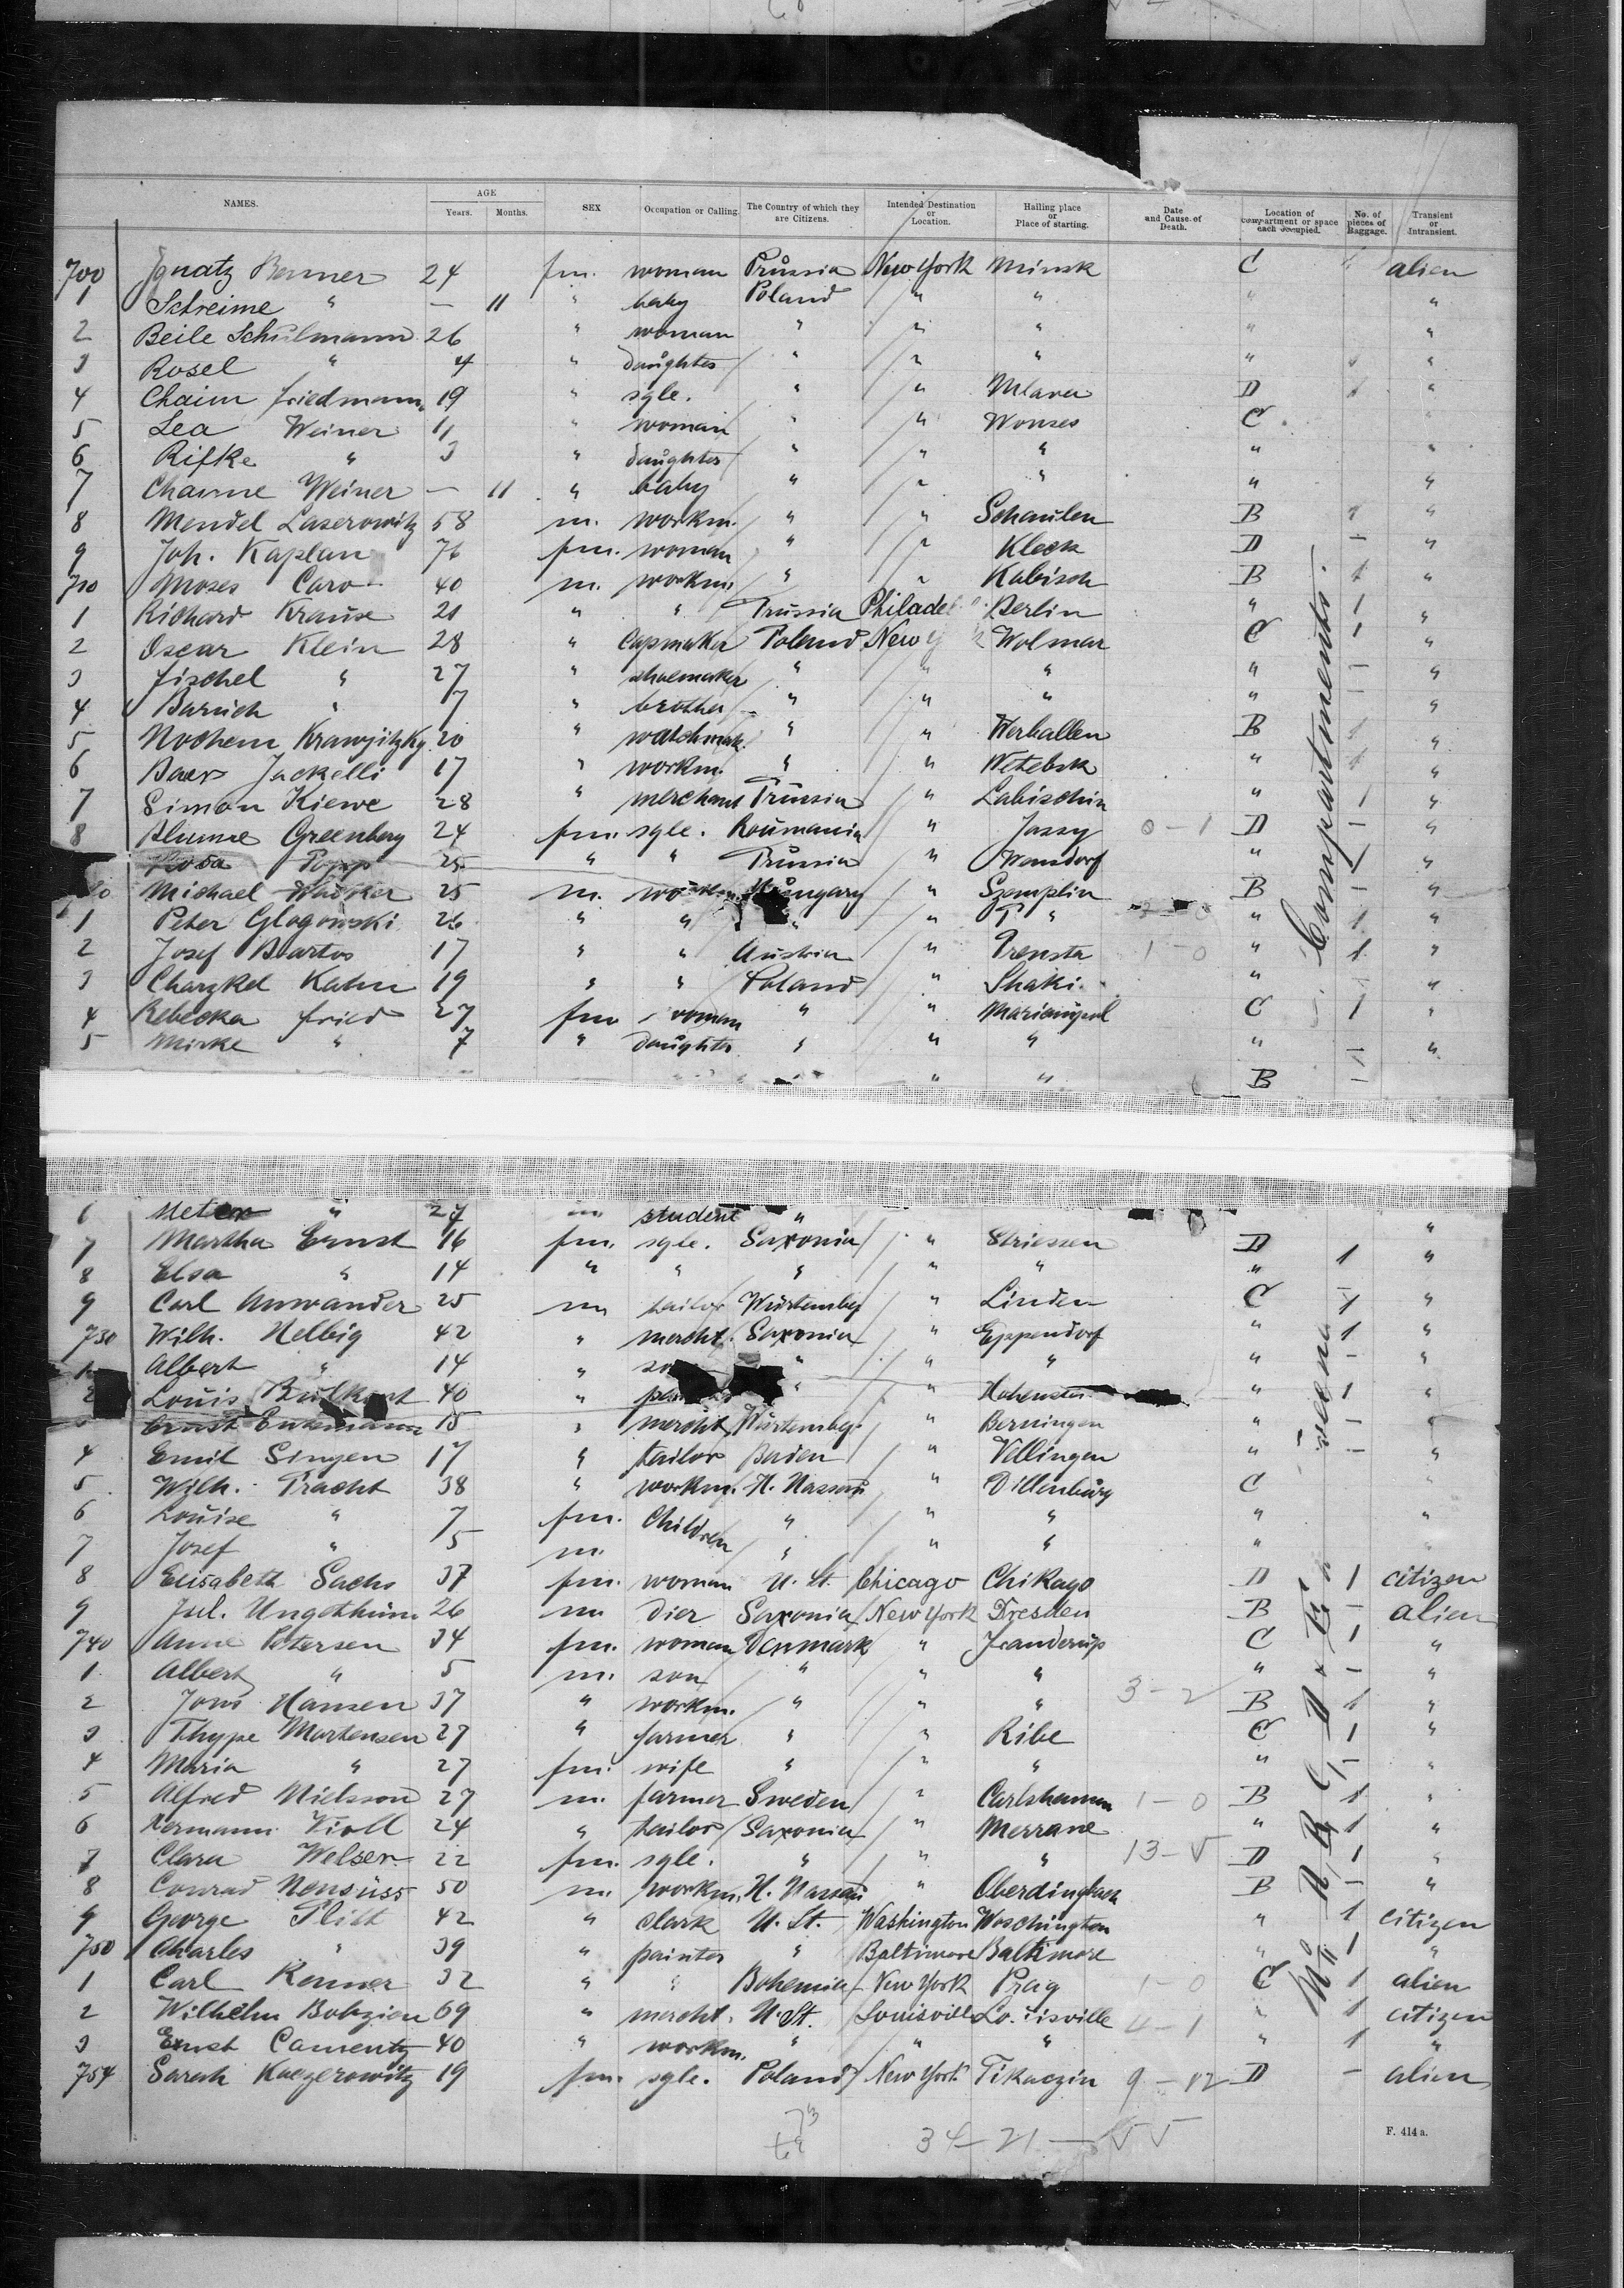 NAMES. AGE Years. Months. SEX Occupation or Calling. The Country of which they are Citizens. Intended Destination or Location. Hailing place or Place of starting. Date and Cause of Death. Location of compartment or space each occupied. No. of pieces of Baggage. Transient or Intransient.
700 Ignatz Benner 24 fm. woman Prussia New York Minsk C alien
1 Schreime " — 11 " baby Poland " " " "
2 Beile Schulmann 26 " woman " " " " "
3 Rosel " 4 " daughter " " " " "
4 Chaim Friedmann 19 " sgle. " " Mlawa D 1 "
5 Lea Weiner " woman " " Wonses C "
6 Rifke " 3 " daughter " " " " "
7 Chaime Weiner — 11 " baby " " " " "
8 Mendel Laserowitz 58 m. workm. " " Schaulen B 1 "
9 Joh. Kaplan 76 fm. woman " " Kleck D — "
710 Moses Caro 40 m. workm. " " Kabisch B 1 "
1 Richard Krause 21 " " Prussia Philadel Berlin " 1 "
2 Oscar Klein 28 " Capmaker Poland New Y Wolmar C 1 "
3 Fischel " 27 " shoemaker " " " " — "
4 Baruch " 7 " brother " " " " — "
5 Nochem Krawjitzky 20 " watchmak. " " Werballen B 1 "
6 Baer Jackelli 17 " workm. " " Wetebsk " 1 "
7 Simon Kiewe 28 " merchant Prussia " Labischin " 1 "
8 Blume Greenberg 24 fm. sgle. Roumania " Jassy 0-1 D — "
Rosa Popp 25 " " Prussia " Wansdorf " 1 "
20 Michael Wacker 25 m. workm. Hungary " Szemplin B — "
1 Peter Glogowski 26 " " " " " " 1 "
2 Josef Bartos 17 " " Austria " Trensta 1-0 " 1 "
3 Charzkel Kahn 19 " " Poland " Shaki " — "
4 Rebecka Fried 27 fm woman " " Mariampol C 1 "
5 Mirke " 7 " daughter " " " " — "
" " B —
6 Meter " 27 m student "
7 Martha Ernst 16 fm. sgle. Saxonia " Striessen D 1 "
8 Elsa " 14 " " " " " " "
9 Carl Anwander 25 m tailor Würtemberg " Linden C 1 "
730 Wilh. Helbig 42 " mercht. Saxonia " Eppendorf " 1 "
1 Albert " 14 " so " " " " — "
2 Louis 40 " " " Hohenstei " 1 "
Ernst 18 " mercht Würtemberg " Berningen " — "
4 Emil Singen 17 " tailor Baden " Vellingen " — "
5 Wilh. Pracht 38 " workm. H. Nassau " Dillenburg C
6 Louise " 7 fm. Children " " " " "
7 Josef " 5 m. " " " " "
8 Elisabeth Sachs 37 fm. woman U. St. Chicago Chikago D 1 citizen
9 Jul. Ungethüm 26 m Dier Saxonia New York Dresden B — alien
740 Anne Petersen 34 fm. woman Denmark " Janderup C 1 "
1 Albert " 5 m. son " " " " — "
2 Jens Hansen 37 " workm. " " " 3-2 B 1 "
3 Thype Mortensen 27 " farmer " " Ribe C 1 "
4 Maria " 27 fm. wife " " " " — "
5 Alfred Nielsson 27 m. farmer Sweden " Carlshamn 1-0 B 1 "
6 Hermann Violl 24 " tailor Saxonia " Merrane " 1 "
7 Clara Welser 22 fm. sgle. " " " 13-5 D 1 "
8 Conrad Neusüss 50 m. workm. H. Nassau " Oberdingbach B — "
9 George Plitt 42 " clark U. St. Washington Woschington " 1 citizen
750 Charles " 39 " painter " Baltimore Baltimore " 1 "
1 Carl Renner 32 " " Bohemia New York Prag 1-0 C 1 alien
2 Wilhelm Bobzien 69 " mercht. U. St. Louisville Louisville 4-1 " 1 citizen
3 Ernst Camentz 40 " workm. " " " " 1 "
754 Sarah Kaczerowitz 19 fm. sgle. Poland New York Tikaczin 9-12 D — alien
34-21-55
F. 414 a.
Compartments